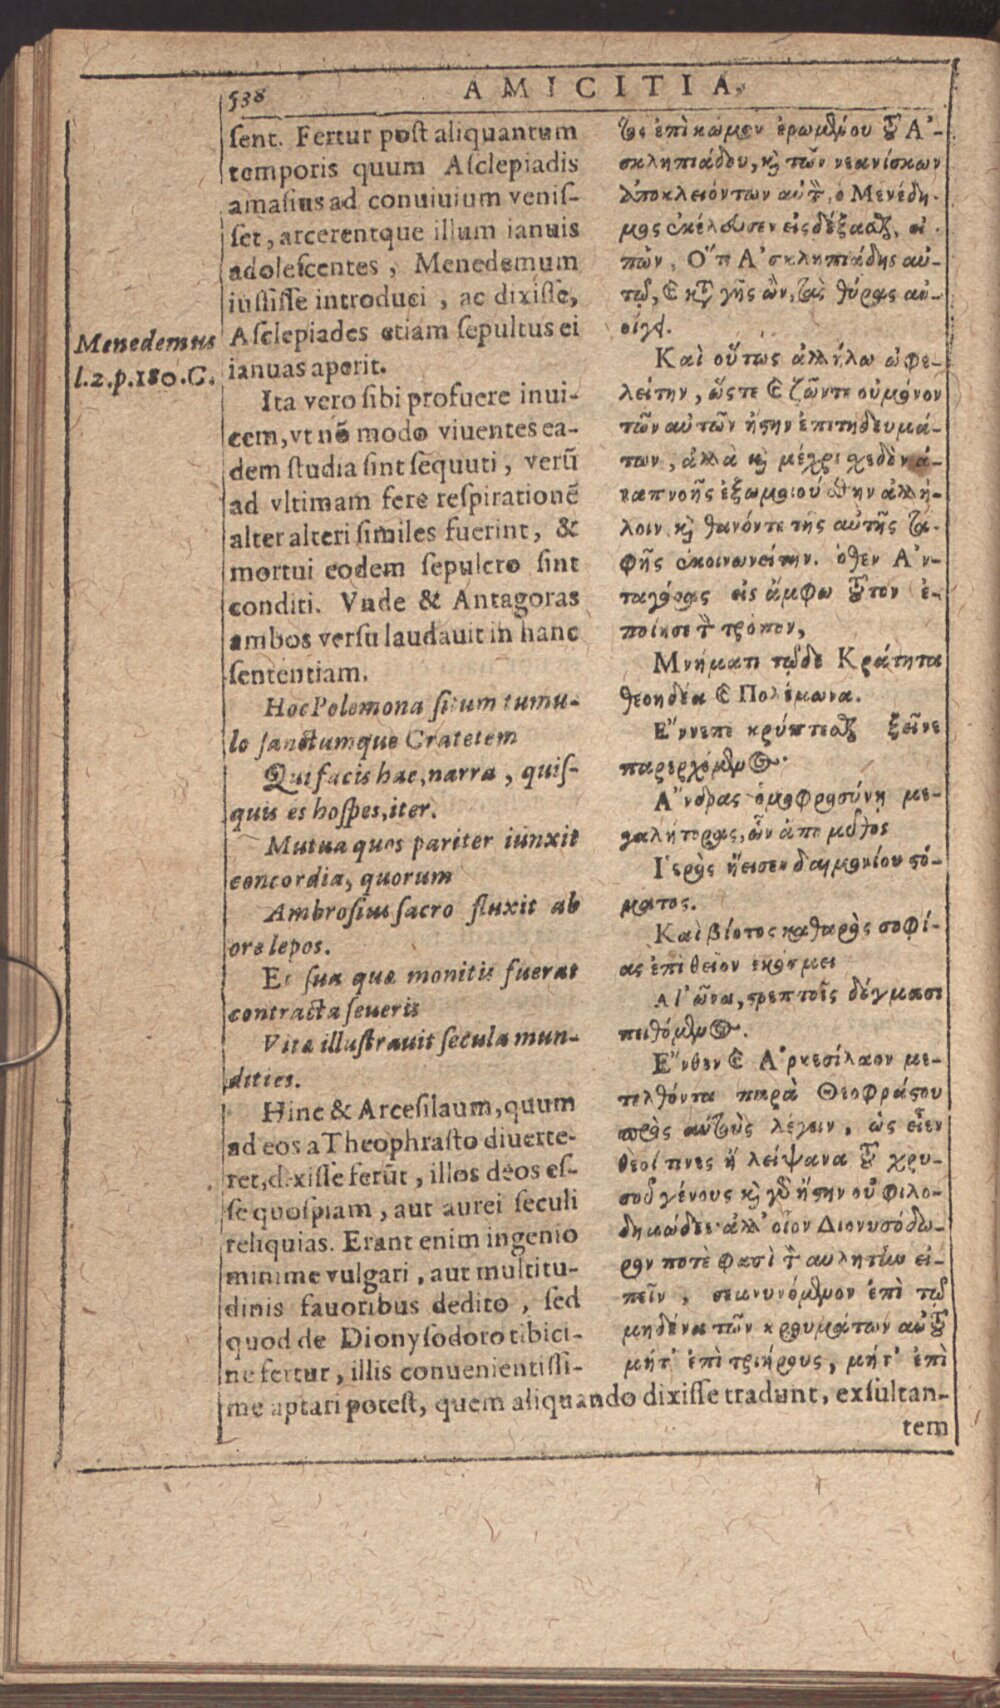 538
AMICITIA,
sent. Fertur post aliquantum
temporis quum Asclepiadis
amasius ad conuiuium venis-
set, arcerentque illum ianuis
adolescentes, Menedemum
iussisse introduci, ac dixisse,
Asclepiades etiam sepultus ei
ianuas aperit.
Menedemus
l.2.p.180.C.
Ita vero sibi profuere inui-
cem, vt nō modo viuentes ea-
dem studia sint sequuti, verū
ad vltimam fere respirationē
alter alteri similes fuerint, &
mortui eodem sepulcro sint
conditi. Vnde & Antagoras
ambos versu laudauit in hanc
sententiam.
Hoc Polemona situm tumu-
lo sanctumque Cratetem
Qui facis hac, narra, quis-
quis es hospes, iter.
Mutua quos pariter iunxit
concordia, quorum
Ambrosius sacro fluxit ab
ore lepos.
Et sua quæ monitis fuerat
contracta seueris
Vita illustrauit secula mun-
dities.
Hinc & Arcesilaum, quum
ad eos a Theophrasto diuerte-
ret, dixisse ferūt, illos deos es-
se quospiam, aut aurei seculi
reliquias. Erant enim ingenio
minime vulgari, aut multitu-
dinis fauoribus dedito, sed
quod de Dionysodoro tibici-
ne fertur, illis conuenientissi-
me aptari potest, quem aliquando dixisse tradunt, exsultan-
tem
τος ἐπὶ κῶμον ἐρωμένου τοῦ Ἀ-
σκληπιάδου, καὶ τῶν νεανίσκων
ἀποκλειόντων αὐτὸν, ὁ Μενέδη-
μος ἐκέλευσεν εἰσδέξασθαι, εἰ-
πὼν, Ὅτι Ἀσκληπιάδης αὐ-
τῷ, καὶ κατὰ γῆς ὢν, τὰς θύρας ἀν-
οίγει.
Καὶ οὕτως ἀλλήλω ὠφε-
λείτην, ὥςτε καὶ ζῶντε οὐ μόνον
τῶν αὐτῶν ἤτην ἐπιτηδευμά-
των, ἀλλὰ καὶ μέχρι σχεδὸν ἀ-
ναπνοῆς ἐξωμοιούσθην ἀλλή-
λοιν καὶ θανόντε τῆς αὐτῆς τα-
φῆς ἐκοινωνείτην. ὅθεν Ἀν-
ταγόρας εἰς ἄμφω τοῦτον ἐ-
ποίησε τὸν τρόπον,
Μνήματι τῷδε Κράτητα
θεουδέα καὶ Πολέμωνα.
Ἔννεπε κρύπτεσθαι ξεῖνε
παρερχόμενος.
Ἄνδρας ὁμοφροσύνῃ με-
γαλήτορας, ὧν ἀπὸ μῦθος
Ἱερὸς ἤεισεν δαιμονίου στό-
ματος.
Καὶ βίοτος καθαρὸς σοφί-
ας ἐπὶ θεῖον ἐκόσμει
Αἰῶνα, στρεπτοῖς δόγμασι
πειθόμενος.
Ἔνθεν καὶ Ἀρκεσίλαον με-
τελθόντα παρὰ Θεοφράστου
πρὸς αὐτοὺς λέγειν, ὡς εἶεν
θεοί τινες ἢ λείψανα τοῦ χρυ-
σοῦ γένους καὶ γὰρ ἤστην οὐ φιλο-
δημώδεε ἀλλ’ οἷον Διονυσόδω-
ρον ποτὲ φασὶ τὸν αὐλητὴν εἰ-
πεῖν, σεμνυνόμενον ἐπὶ τῷ
μηδένα τῶν κρουμάτων αὐτοῦ
μήτ’ ἐπὶ τριήρους, μήτ’ ἐπὶ